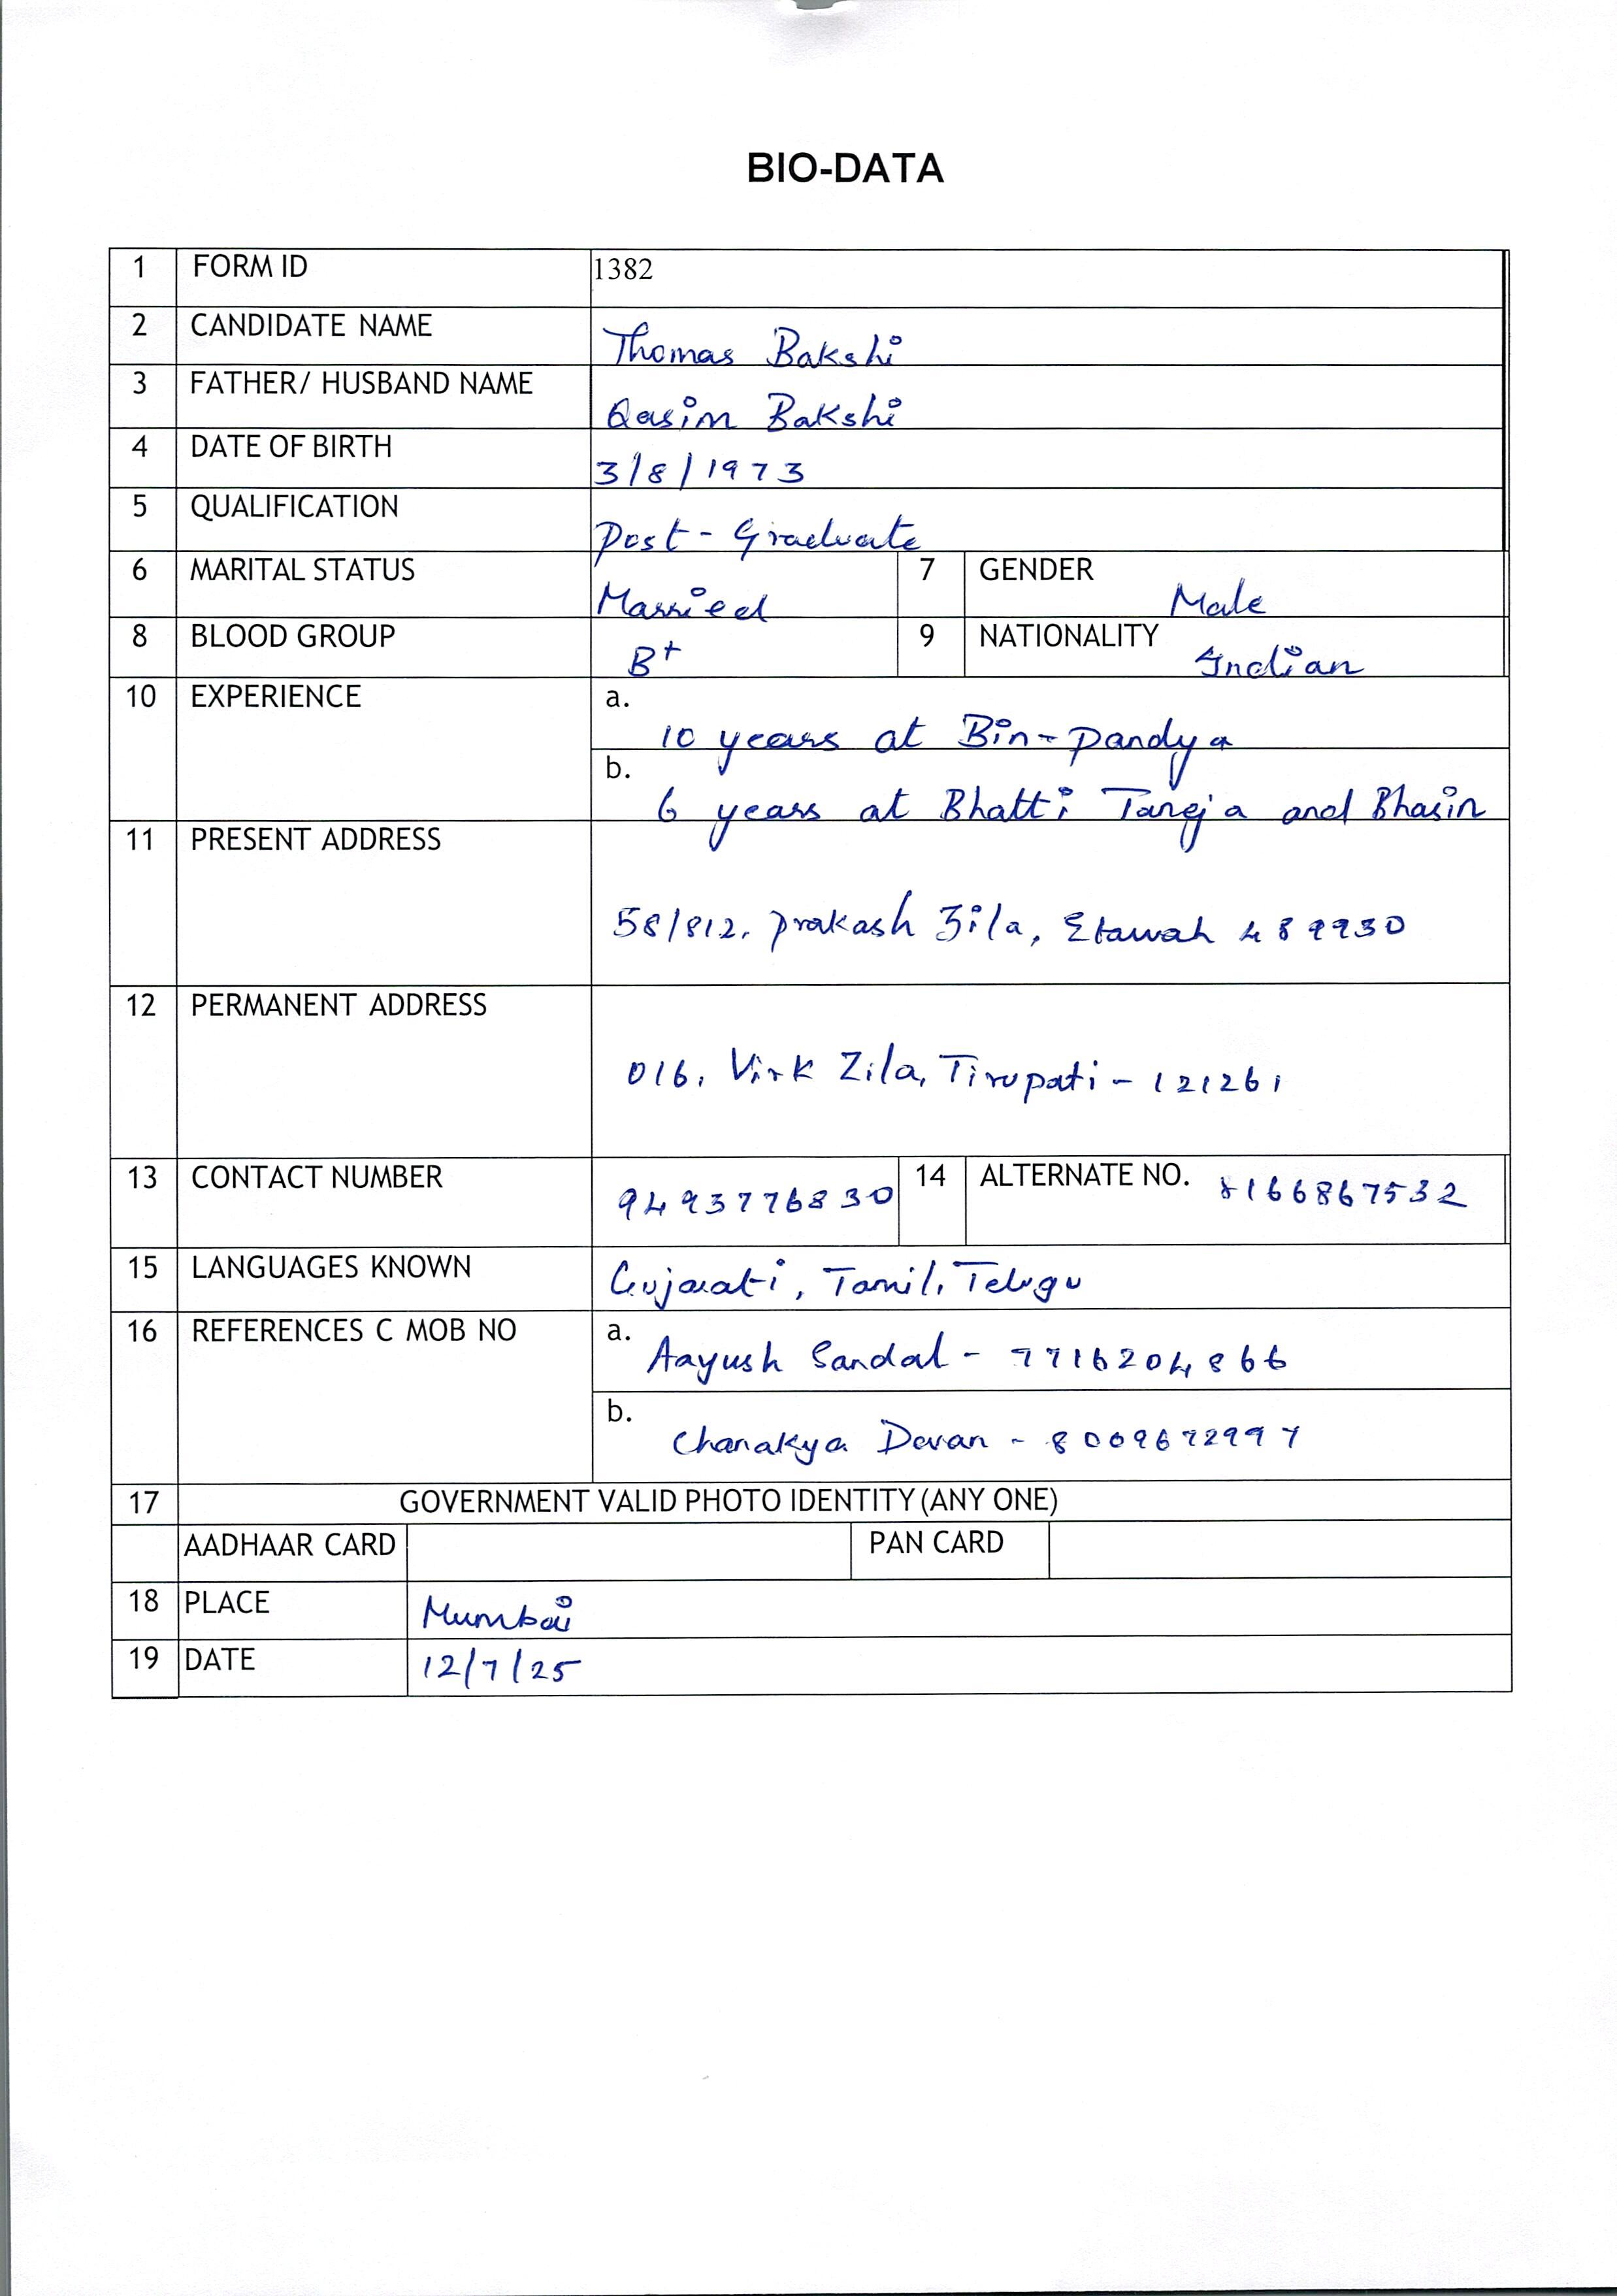 BIO-DATA
1 FORM ID 1382
2 CANDIDATE NAME Thomas Bakshi
3 FATHER/ HUSBAND NAME Qasim Bakshi
4 DATE OF BIRTH 3/8/1973
5 QUALIFICATION Post-Graduate
6 MARITAL STATUS Married 7 GENDER Male
8 BLOOD GROUP B+ 9 NATIONALITY Indian
10 EXPERIENCE a. 10 years at Bin-Pandya
b. 6 years at Bhatti Taneja and Bhasin
11 PRESENT ADDRESS
58/812, Prakash Zila, Etawah 489930
12 PERMANENT ADDRESS
016, Virk Zila, Tirupati - 121261
13 CONTACT NUMBER 9493776830 14 ALTERNATE NO. 8166867532
15 LANGUAGES KNOWN Gujarati, Tamil, Telugu
16 REFERENCES C MOB NO a. Aayush Sandal - 7716204866
b. Chanakya Devan - 8009672997
17 GOVERNMENT VALID PHOTO IDENTITY (ANY ONE)
AADHAAR CARD PAN CARD
18 PLACE Mumbai
19 DATE 12/7/25